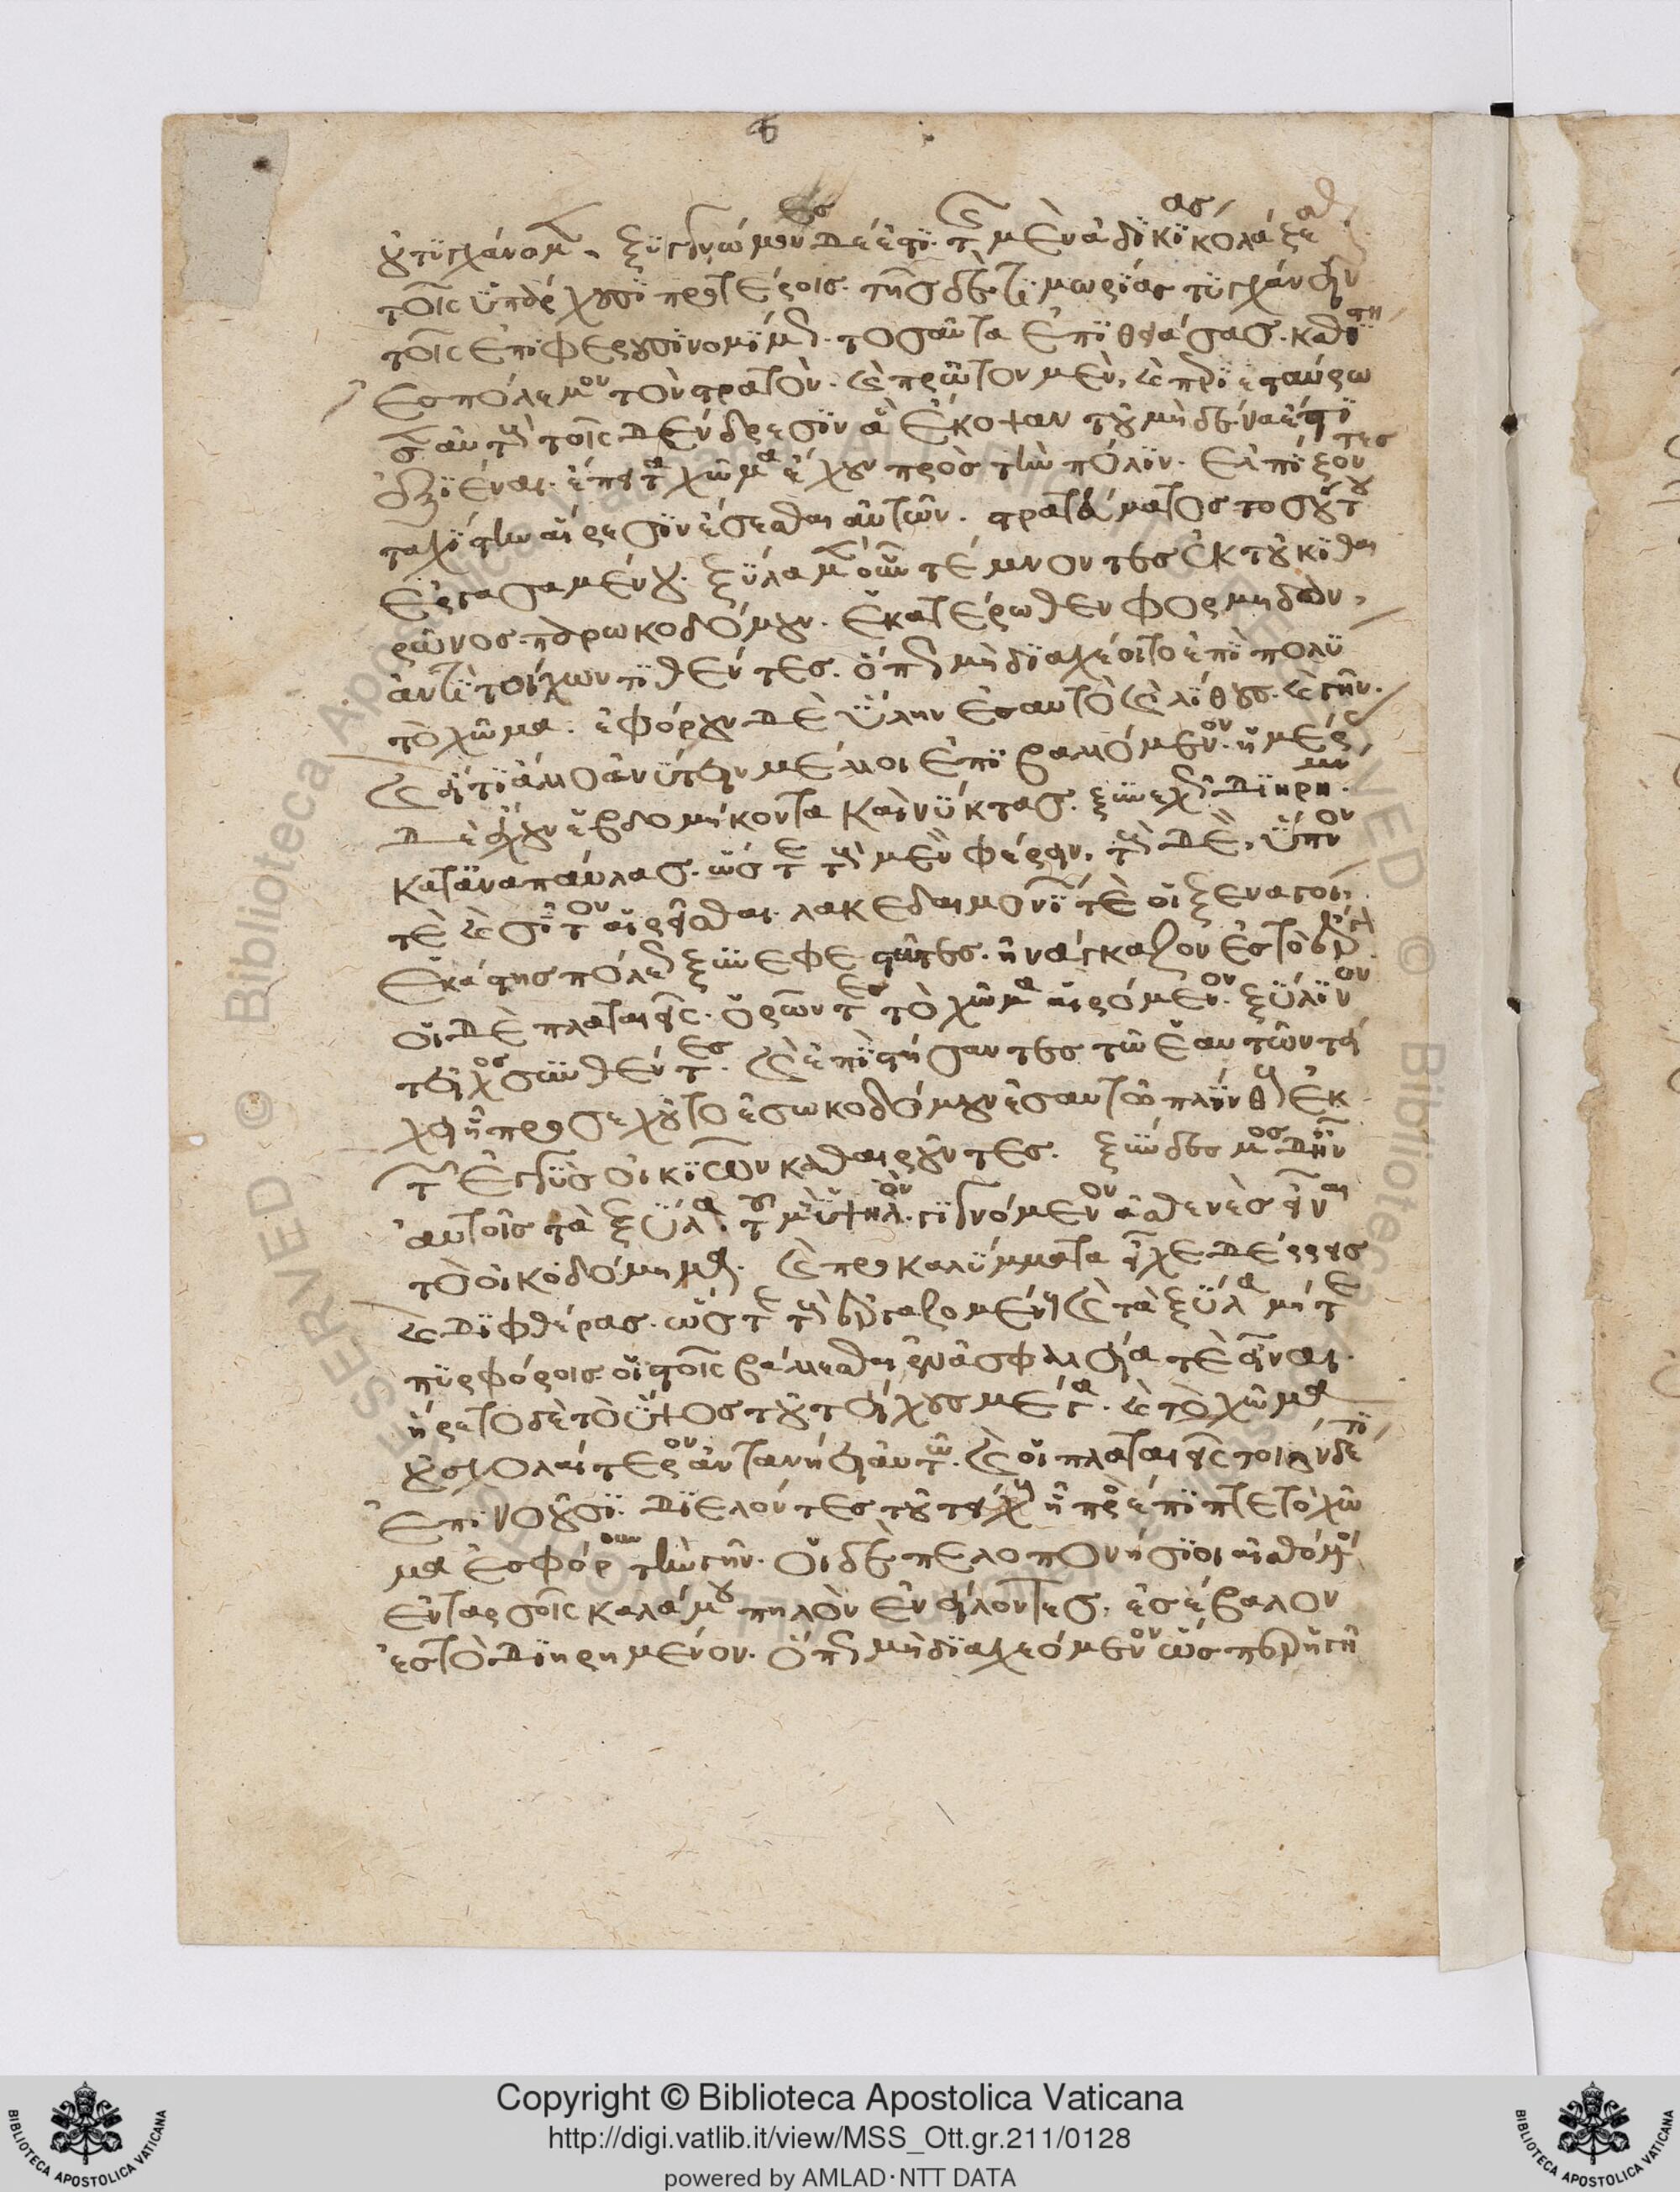 οὐ τυγχάνομεν. ξυγγνώμονες δὲ ἔστε τῆς μὲν ἀδικίας κολάζεσθαι
τοῖς ὑπάρχουσι προτέροις. τῆς δὲ τιμωρίας τυγχάνειν
τοῖς ἐπιφέρουσι νομίμως. τοσαῦτα ἐπιθειάσας. καθίστη
ἐς πόλεμον τὸν στρατόν. καὶ πρῶτον μὲν, περιεσταύρω
σαν αὐτοὺς τοῖς δένδρεσιν ἃ ἔκοψαν τοῦ μηδένα ἔτι
ἐξιέναι. ἔπειτα χῶμα ἔχουν πρὸς τὴν πόλιν. ἐλπίζοντες
ταχίστην αἵρεσιν ἔσεσθαι αὐτῶν. στρατεύματος τοσούτου
ἐργασαμένου. ξύλα μὲν οὖν τέμνοντες ἐκ τοῦ κιθαι
ρῶνος. παρῳκοδόμουν. ἑκατέρωθεν φορμηδὸν,
ἀντὶ τοίχων τιθέντες. ὅπως μὴ διαχέοιτο ἐπὶ πολὺ
τὸ χῶμα. ἐφόρουν δὲ ὕλην ἐς αὐτὸ καὶ λίθους. καὶ γῆν.
καὶ εἴ τι ἄλλο ἀνύτειν μέλλοι ἐπιβαλλόμενον. ἡμέρας
δὲ ἔχουν ἑβδομήκοντα καὶ νύκτας. ξυνεχῶς διῃρημένοι
κατ' ἀναπαύλας. ὥστε τοὺς μὲν φέρειν, τοὺς δὲ, ὕπνον
τὲ καὶ σῖτον αἱρεῖσθαι. λακεδαιμονίων τὲ οἱ ξεναγοὶ
ἑκάστης πόλεως ξυνεφεστῶτες. ἠνάγκαζον ἐς τὸ ἔργον
οἱ δὲ πλαταιεῖς. ὁρῶντες τὸ χῶμα αἰρόμενον. ξύλινον
τεῖχος συνθέντες. καὶ ἐπιστήσαντες τῷ ἑαυτῶν τεί
χει ᾗ προσεχοῦτο ἐσῳκοδόμουν ἐς αὐτὸ πλίνθους ἐκ
τῶν ἐγγὺς οἰκιῶν καθαιροῦντες. ξύνδεσμος δ' ἦν
αὐτοῖς τὰ ξύλα. τοῦ μὴ ὑψηλὸν γιγνόμενον ἀσθενὲς εἶναι
τὸ οἰκοδόμημα. καὶ προκαλύμματα εἶχε δέρρεις
καὶ διφθέρας. ὥστε τοὺς ἐργαζομένους καὶ τὰ ξύλα μήτε
πυρφόροις οἰστοῖς βάλλεσθαι ἐν ἀσφαλείᾳ τὲ εἶναι.
ᾔρετο δὲ τὸ ὕψος τοῦ τείχους μέγα. καὶ τὸ χῶμα
οὐ σχολαίτερον ἀντανῄει αὐτῷ. καὶ οἱ πλαταιεῖς τοιόνδέ τι
ἐπινοοῦσι. διελόντες τοῦ τείχους ᾗ προσέπιπτε τὸ χῶ
μα ἐσφόρουν τὴν γῆν. οἱ δὲ πελοποννήσιοι αἰσθόμενοι
ἐν ταρσοῖς καλάμου πηλὸν ἐνείλοντες, ἐσέβαλον
ἐς τὸ διῃρημένον. ὅπως μὴ διαχεόμενον ὥσπερ ἡ γῆ
Copyright © Biblioteca Apostolica Vaticana
http://digi.vatlib.it/view/MSS_Ott.gr.211/0128
powered by AMLAD·NTT DATA